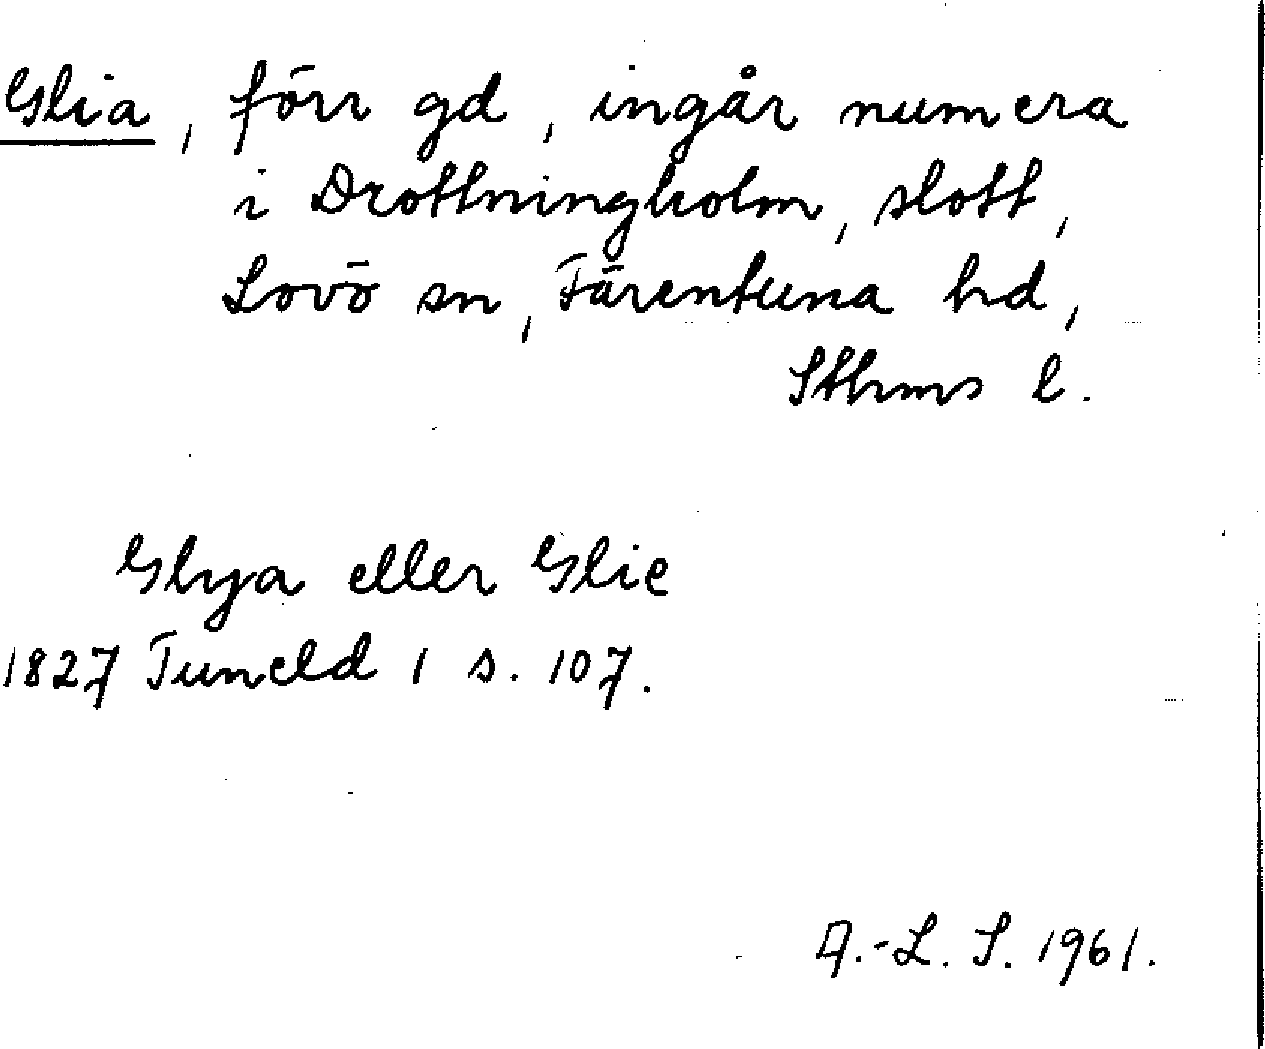 Glia, förr gd, ingår numera
i Drottningholm, slott,
Lovö sn, Färentuna hd,
Sthms l.
Glya eller Glie
1827 Tuneld 1 s. 107.
A.-L. S. 1961.